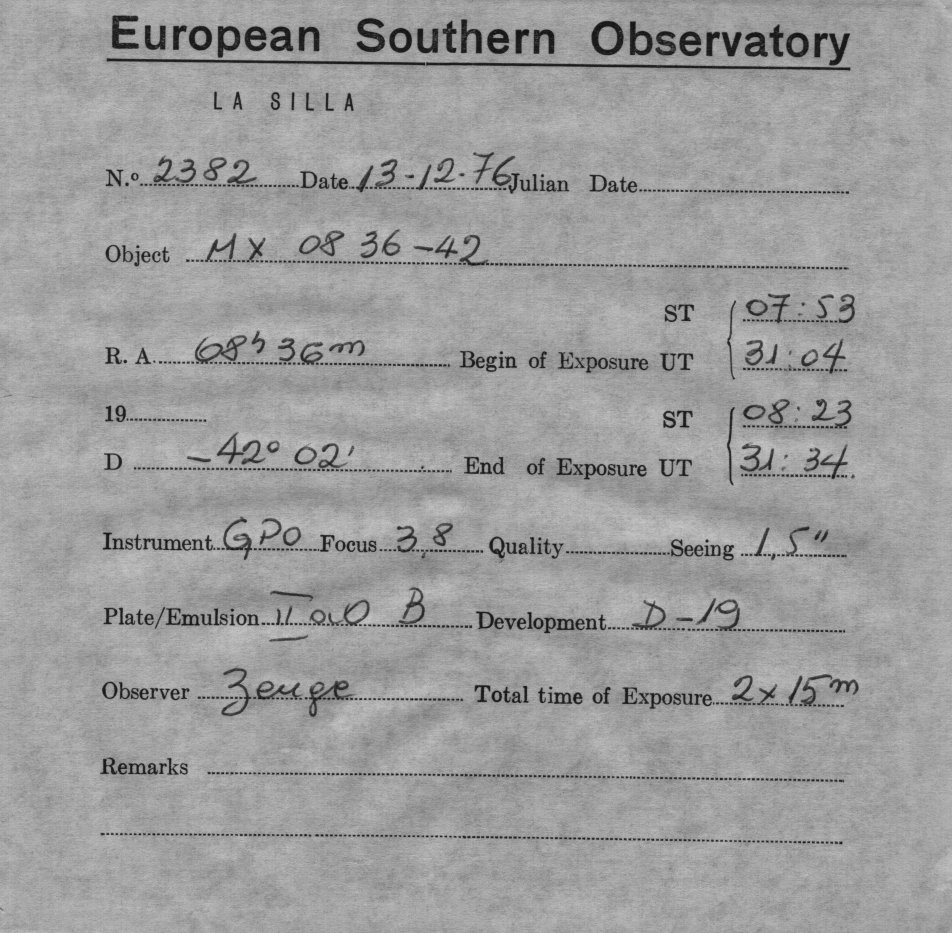 European Southern Observatory
LA SILLA
N.º 2382 Date 13-12-76 Julian Date
Object MX 08 36 -42
ST 07:53
R. A. 08h 36m Begin of Exposure UT 31:04
19 ST 08:23
D -42° 02' End of Exposure UT 31:34
Instrument GPO Focus 3,8 Quality Seeing 1,5"
Plate/Emulsion II a O B Development D-19
Observer Zeuge Total time of Exposure 2x15m
Remarks